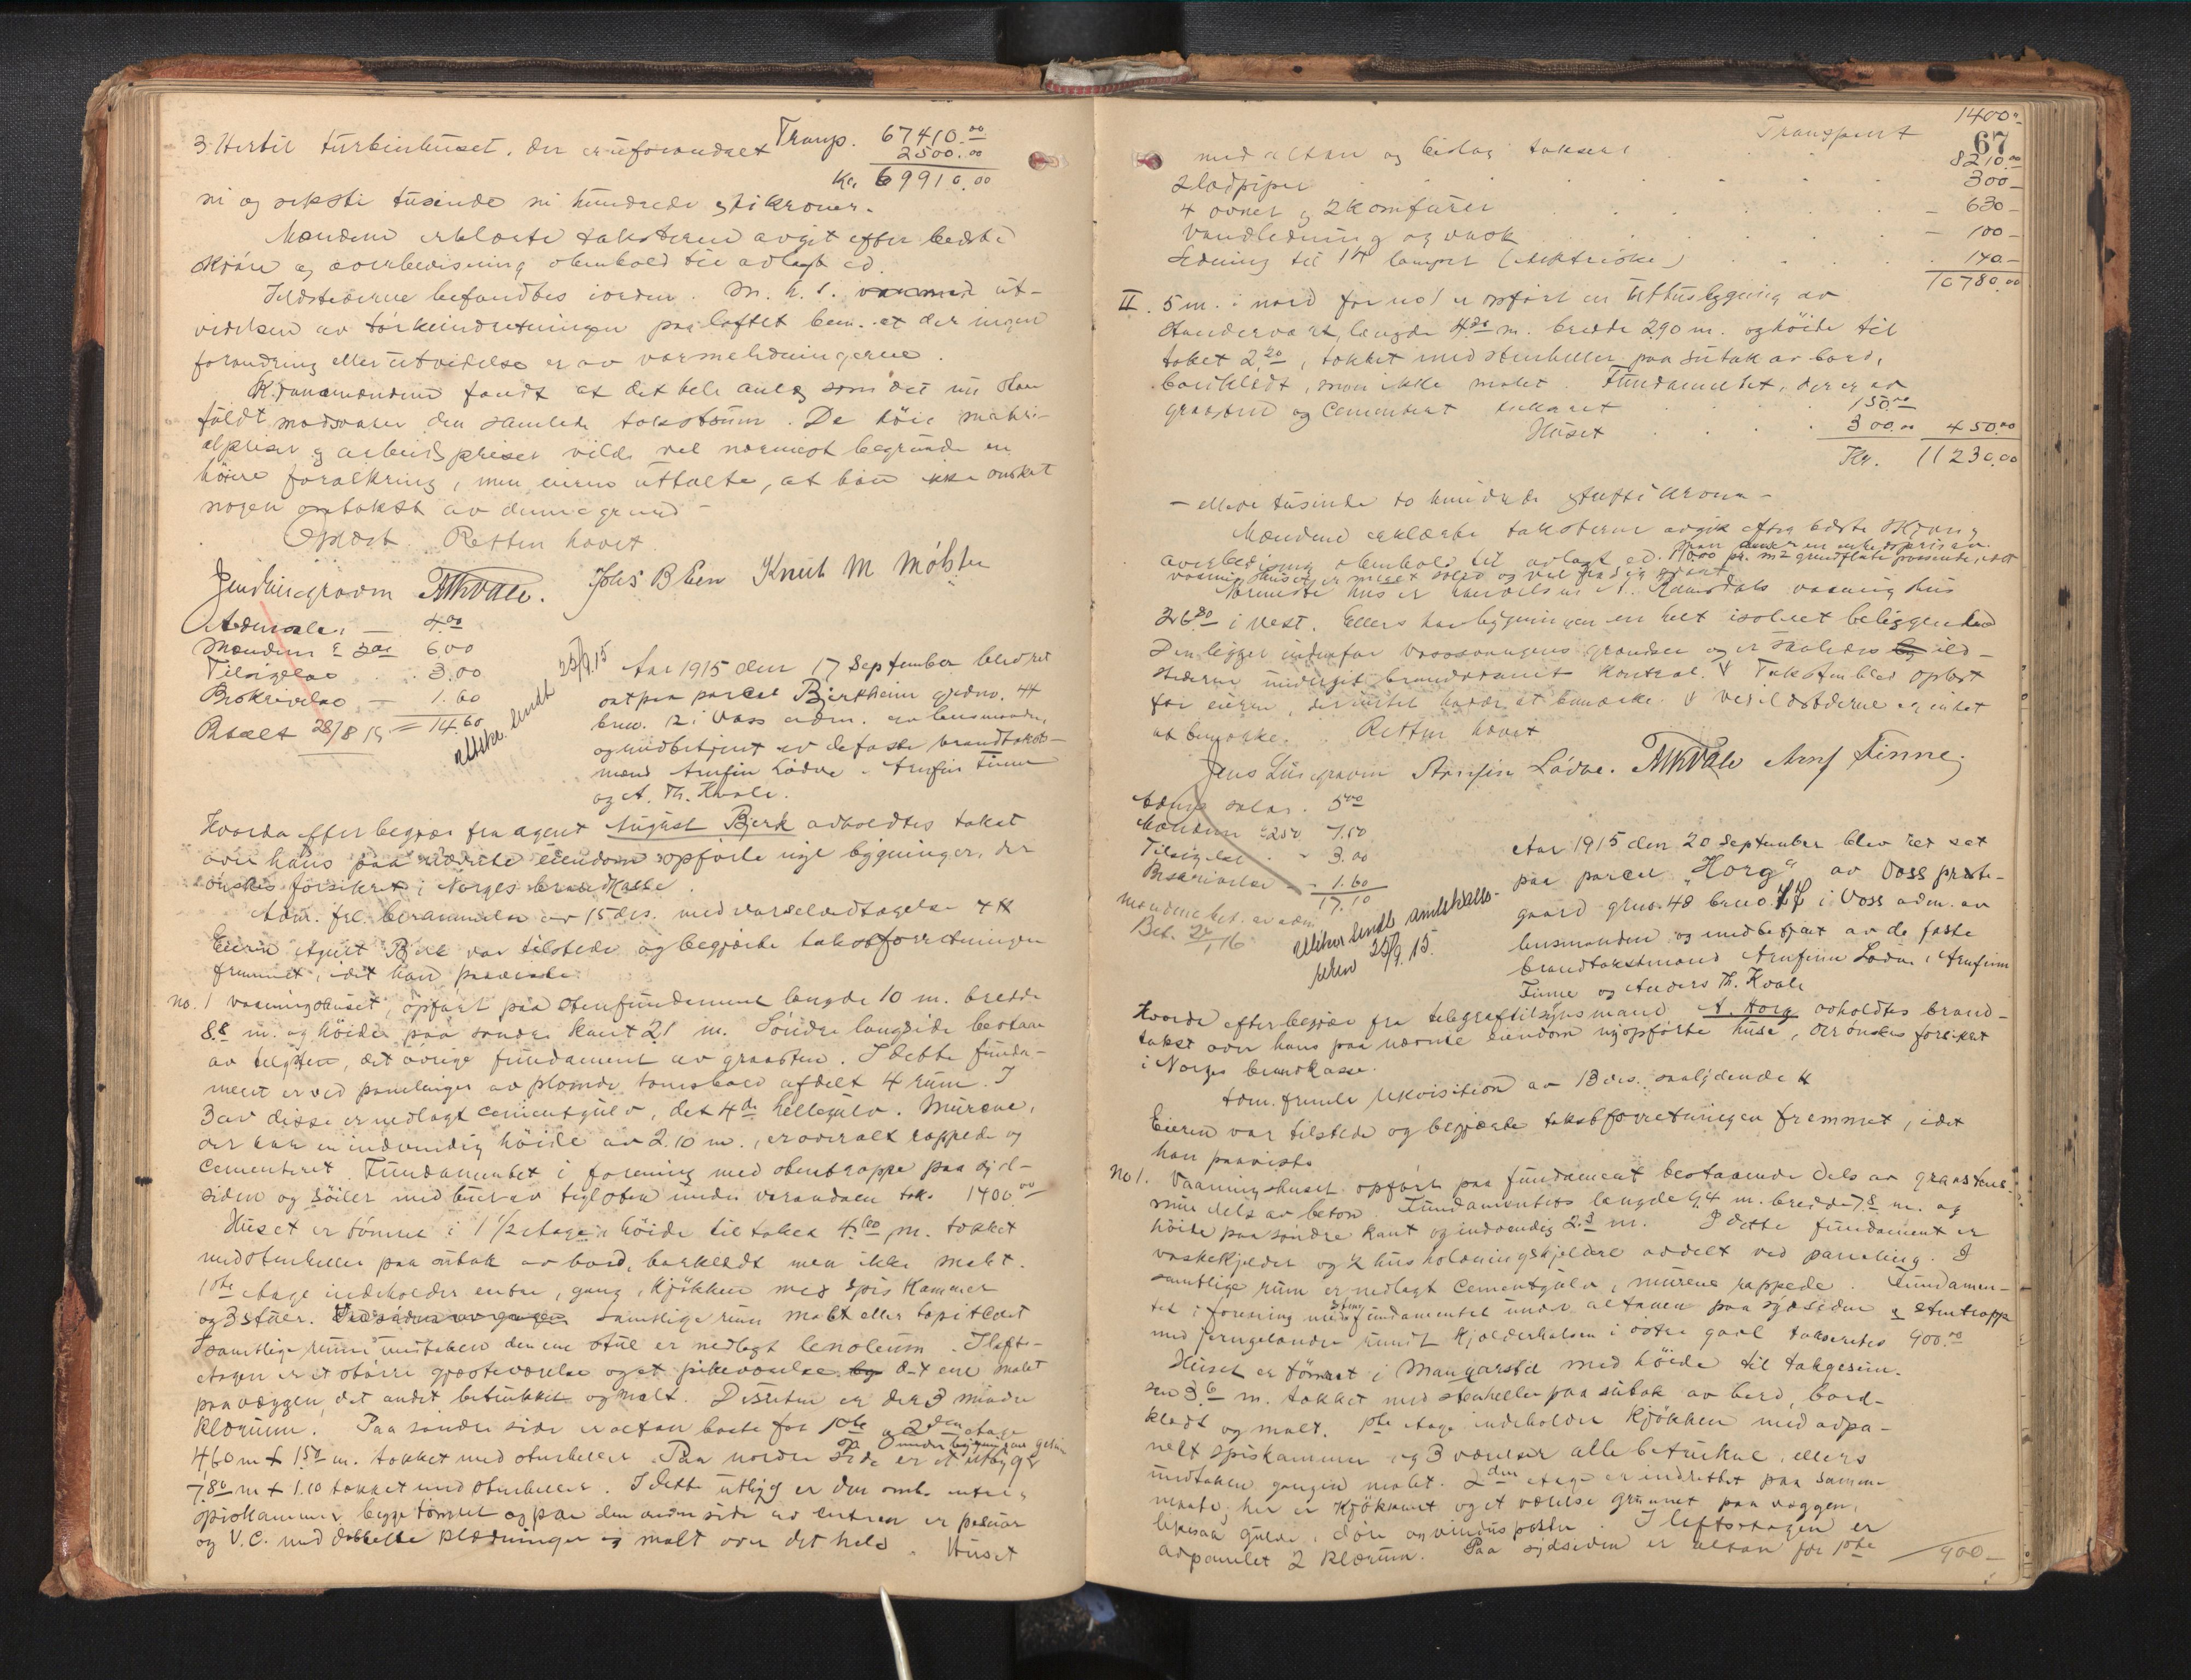 3. Hertil turbinhuset, der er uforandret Transp. 67410.00
2500.00
Kr. 69910.00
ni og seksti tusinde ni hundrede ti kroner.
Mændene erklærte taksterne avgit efter bedste
skjøn og overbevisning i henhold til avlagt ed.
Ildstederne befandtes iorden. M. h. t. ut-
videlsen av tørkeindretningen paa loftet bem. at der ingen
forandring eller utvidelse er av varmeledningerne.
fandt at det hele anlæg som det nu staar
fuldt modsvarer den samlede takstsum. De høie materi-
alpriser og arbeidspriser vilde vel nærmest begrunde en
høiere forsikring, men eieren uttalte, at han ikke ønsket
nogen omtakst av denne grund -
Oplæst. Retten hævet.
Jens Lunggravn AThKvale. Johs B Eien Knut M Mölster
4.00
Mændene à 2.00 6.00
Tilsigelse . . 3.00
Beskrivelse — 1.60
Betalt 28/8 15 = 14.60
Utskr. sendt 25/9.15
Aar 1915 den 17 September blev ret
sat paa parcel Bjerkheim grdno. 44
brno. 12 i Voss adm. av lensmanden,
og medbetjent av de faste brandtakst-
mænd Arnfin Lødve, Arnfin Finne
og A. Th. Kvale.
Hvorda efter begjær fra agent August Bjerk avholdtes takst
over hans paa nævnte eiendom opførte nye bygninger, der
ønskes forsikret i Norges brandkasse.
Adm. frl. berammelse av 15 ds. med varselvedtagelse
Eieren Agent Bjerk var tilstede og begjærte takstforretningen
fremmet, idet han paaviste:
no. 1 vaaningshuset, opført paa stenfundament længde 10 m. bredde
8.8 m. og høide paa søndre kant 2.1 m. Søndre langside bestaar
av teglsten, det øvrige fundament av graasten. I dette funda-
ment er ved panelinger av pløiede tomsbord afdelt 4 rum. I
3 av disse er nedlagt cementgulv, det 4de hellegulv. Murene,
der har en indvendig høide av 2.10 m., er overalt rappede og
cementeret. Fundamentet i forening med stentrappe paa syd-
siden og søiler med buer av teglsten under verandaen tak. 1400.00
Huset er tømret i 1 1/2 etage i høide til taket 4.60 m. tækket
med stenheller paa sutak av bord, bordklædt men ikke malt.
1ste etage indeholder entre, gang, kjøkken med spiskammer
og 3 stuer. samtlige rum malt eller tapitcert
I samtlige rum undtaken den ene stue er nedlagt linoleum. I lofts-
etagen er et større gjæsteværelse og et pikeværelse det ene malt
paa væggen, det andet betrukket og malt. Desuten er der 3 mindre
klærum. Paa søndre side er altan baade for 1ste og 2den etage
4,60 m + 1.50 m. tækket med stenheller. Paa nordre side er et utbyg
under bygningens gesims
7.80 m + 1.10 tækket med stenheller. I dette utbyg er den omh. entre,
spiskammer begge tømret og paa den anden side av entreen er
og V.C. med dobbelte klædninger og malt over det hele. Huset
67
Transport 1400.-
med altan og bislag takseres 8210.00
2 ladpiper . . . 300 —
4 ovner og 2 komfurer . . . — 630 —
Vandledning og vask . . . — 100 —
Ledning til 14 lamper (elektriske) . . . 140.—
10780.00
II. 5 m. i nord for no 1 er opført en uthusbygning av
stændervært, længde 4.20 m. bredde 2.90 m. og høide til
taket 2.20, tækket med stenheller paa sutak av bord,
bordklædt, men ikke malet. Fundamentet, der er av
graasten og cementert takseret . . . 150.00
Huset . . . 300.00 450.00
Kr. 11230.00
— elleve tusinde to hundrede og tretti kroner —
Mændene erklærte taksterne avgit efter bedste skjøn og
overbevisning i henhold til avlagt ed. Man anser en enhedspris av
70.00 pr. m2 grundflate passende, idet
vaaningshuset er meget solid og vel
Nærmeste hus er vaaning hus
26.80 i vest. Ellers har bygningen en helt isoleret beliggenhed
Den ligger indenfor Vossevangens grændser og er saaledes ild-
stederne undergit brandvæsenets kontrol. Taksten blev oplæst
for eieren, der intet hadde at bemærke. Ved ildstederne er intet
at bemærke. Retten hævet
Jens Lunggravn Arnfin Lödve. AThKvale Arnf Finne.
salær . 5.00
Mændene à 2.50 7.50
Tilsigelse . - 3.00
Beskrivelse - 1.60
17.10
Mændene bet. av adm.
Utskr. sendt amtskasse-
reren 25/9.15.
Aar 1915 den 20 September blev ret sat
paa parcel „Horg" av Voss preste-
gaard grno. 48 brno. i Voss adm. av
lensmanden og medbetjent av de faste
brandtakstmænd Arnfinn Lødve, Arnfinn
Finne og Anders Th. Kvale
Hvorda efter begjær fra telegraftilsynsmand A. Horg avholdtes brand-
takst over hans paa nævnte eiendom nyopførte huse, der ønskes forsikret
i Norges brandkasse.
Adm. fremla rekvisition av 13 ds. saalydende
Eieren var tilstede og begjærte takstforretningen fremmet, idet
han paaviste
No 1. Vaaningshuset opført paa fundament bestaaende dels av graastens-
mur dels av beton. Fundamentets længde 9.4 m. bredde 7.8 m. og
høide paa søndre kant og indvendig 2.3 m. I dette fundament er
vaskekjelder og 2 husholdningskjeldere avdelt ved paneling. I
samtlige rum er nedlagt cementgulv, murene rappede. Fundamen-
tet i forening med stenfundamentet under altanen paa sydsiden og stentrapp
med jerngelænder rundt kjælderhalsen i østre gavl takseretes 900.00
Huset er tømret i Mansarstil med høide til takgesim-
sen 3.6 m. tækket med stenheller paa sutak av bord, bord-
klædt og malt. 1ste etage indeholder kjøkken med avpa-
nelt spiskammer og 3 værelser alle betrukne, ellers
undtaken gangen malet. 2den etage er indrettet paa samme
maate, her er kjøkkenet og et værelse grunnet paa væggen,
likesaa gulve, døre og vinduspostene. I loftsetagen er
avpanelet 2 klærum. Paa sydsiden er altan for 1ste
900 —